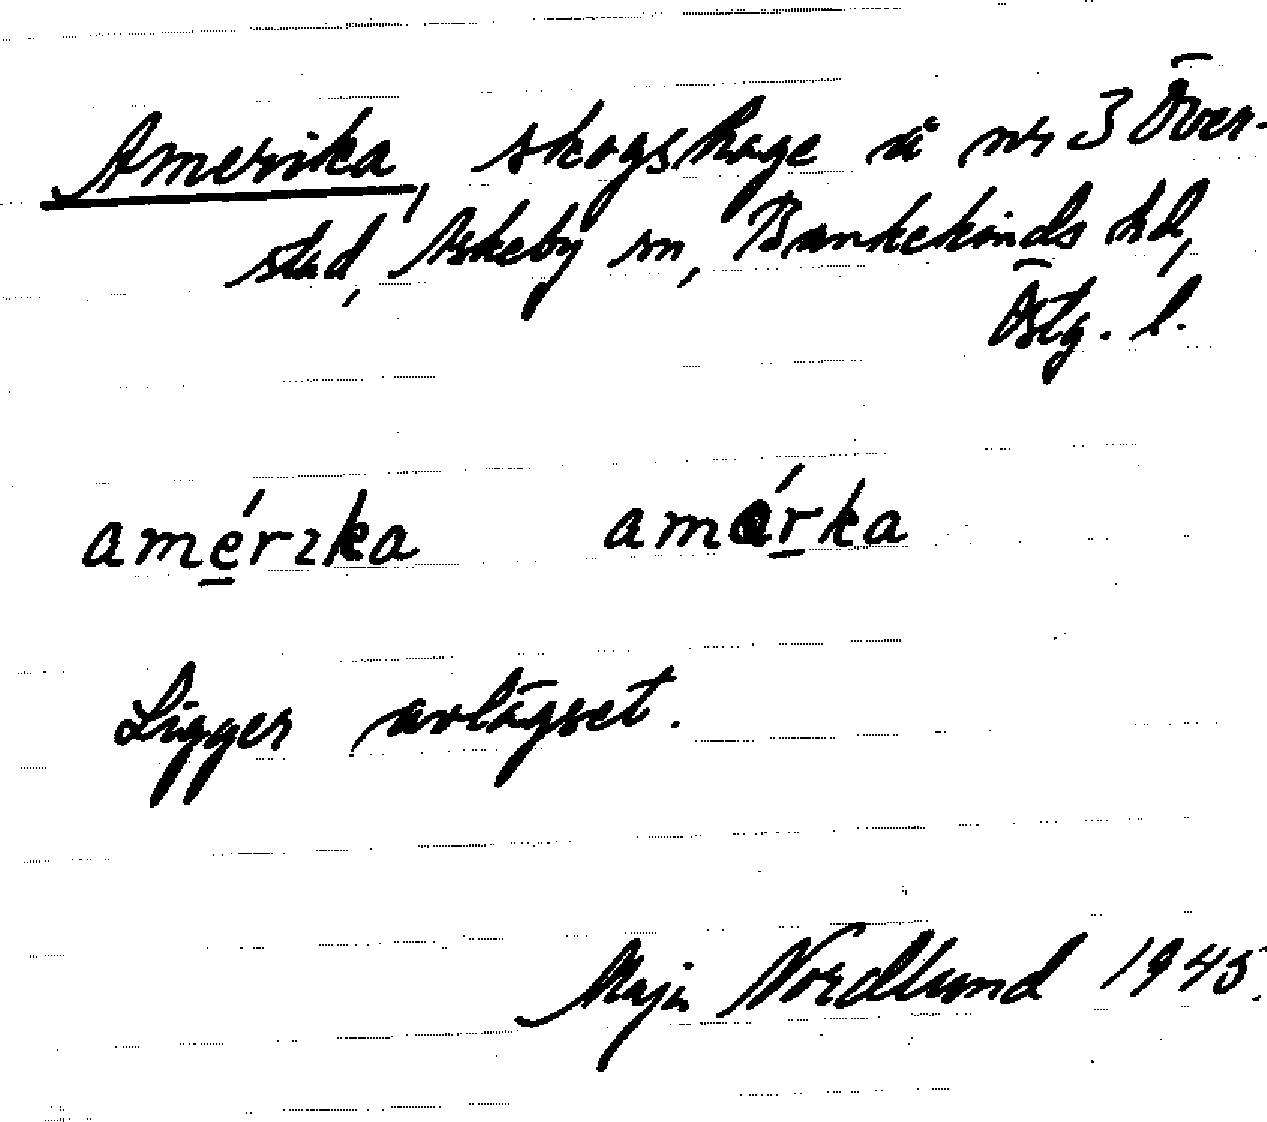 Amerika, skogshage å nr 3 Över-
stad, Askeby sn, Bankekinds hd,
Östg. l.
amérıka amérka
Ligger avlägset.
Maja Nordlund 1945.